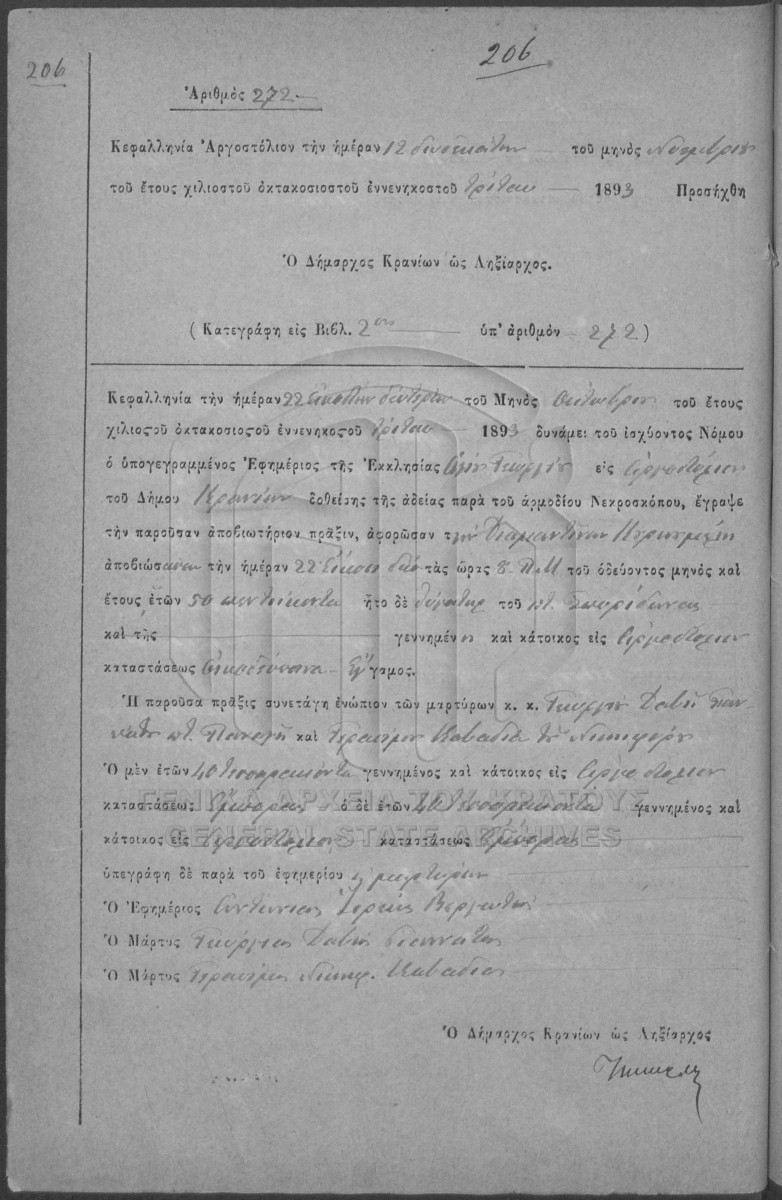 206
206
Ἀριθμὸς 272
Κεφαλληνία Ἀργοστόλιον τὴν ἡμέραν 12 δωδεκάτην τοῦ μηνὸς Νοεμβρίου
τοῦ ἔτους χιλιοστοῦ ὀκτακοσιοστοῦ ἐννενηκοστοῦ τρίτου 1893 Προσήχθη
Ὁ Δήμαρχος Κρανίων ὡς Ληξίαρχος.
( Κατεγράφη εἰς Βιβλ. 2ον ὑπ' ἀριθμὸν 272 )
Κεφαλληνία τὴν ἡμέραν 22 Εἰκοστὴν δευτέραν τοῦ Μηνὸς Ὀκτωβρίου τοῦ ἔτους
χιλιοςοῦ ὀκτακοσιοςοῦ ἐννενηκοςοῦ τρίτου 1893 δυνάμει τοῦ ἰσχύοντος Νόμου
ὁ ὑπογεγραμμένος Ἐφημέριος τῆς Ἐκκλησίας Ἁγίου Γεωργίου εἰς Ἀργοστόλιον
τοῦ Δήμου Κρανίων δοθείσης τῆς ἀδείας παρὰ τοῦ ἁρμοδίου Νεκροσκόπου, ἔγραψε
τὴν παροῦσαν ἀποβιωτήριον πρᾶξιν, ἀφορῶσαν τὴν Διαμαντίναν
ἀποβιώσασαν τὴν ἡμέραν 22 Εἴκοσι δύο τὰς ὥρας 8 Π.Μ τοῦ ὁδεύοντος μηνὸς καὶ
ἔτους ἐτῶν 50 πεντήκοντα ἦτο δὲ θυγάτηρ τοῦ ποτ. Σπυρίδωνος
καὶ τῆς γεννημένη καὶ κάτοικος εἰς Ἀργοστόλιον
καταστάσεως Ἔγγαμος.
Ἡ παροῦσα πρᾶξις συνετάγη ἐνώπιον τῶν μαρτύρων κ. κ. Γεωργίου Δαβῆ Γιαν-
νάτου ποτ. Παναγῆ καὶ Γερασίμου Καβαδία τοῦ Νικηφόρου
Ὁ μὲν ἐτῶν 40 τεσσαράκοντα γεννημένος καὶ κάτοικος εἰς Ἀργοστόλιον
καταστάσεως Ἔμπορος ὁ δὲ ἐτῶν 40 τεσσαράκοντα γεννημένος καὶ
κάτοικος εἰς Ἀργοστόλιον καταστάσεως Ἔμπορος
ὑπεγράφη δὲ παρὰ τοῦ ἐφημερίου μαρτύρων
Ὁ Ἐφημέριος Ἀντώνιος Ἱερεὺς Βεργωτῆς
Ὁ Μάρτυς Γεώργιος Δαβῆς Γιαννάτος
Ὁ Μάρτυς Γεράσιμος Νικηφ. Καβαδίας
Ὁ Δήμαρχος Κρανίων ὡς Ληξίαρχος
ΓΕΝΙΚΑ ΑΡΧΕΙΑ ΤΟΥ ΚΡΑΤΟΥΣ
GENERAL STATE ARCHIVES